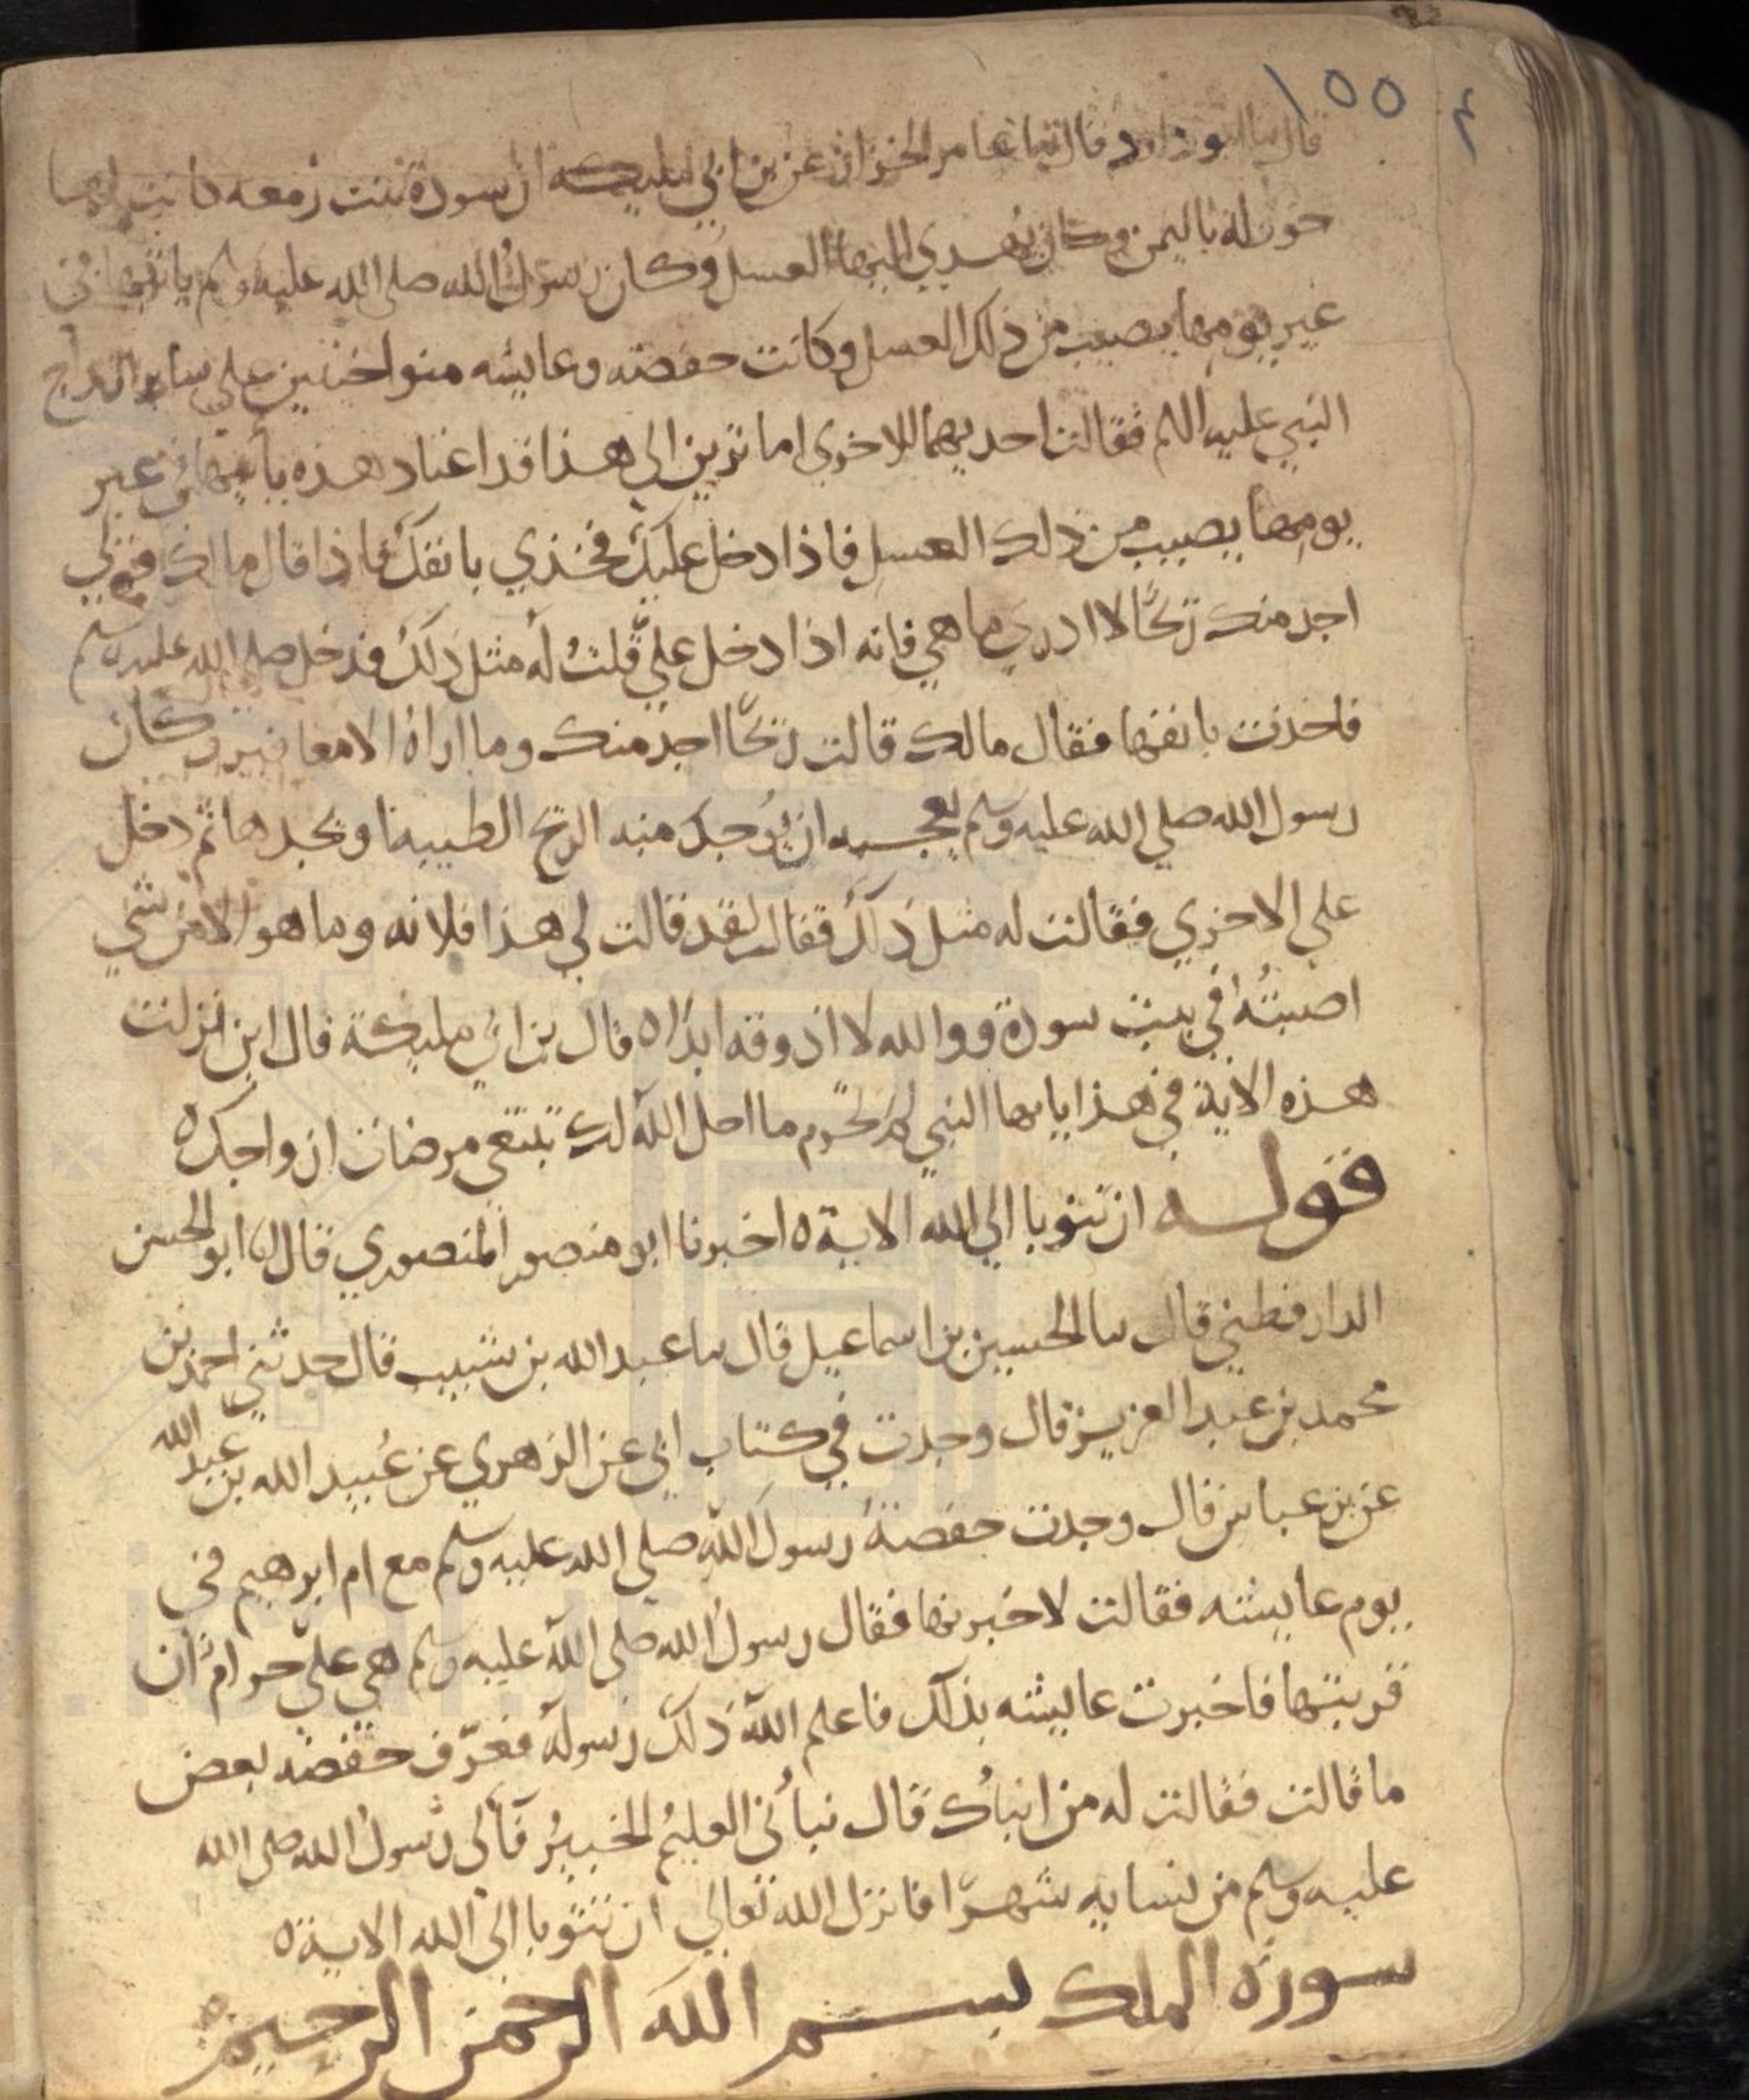 ١٥٥
قال نا ابو داود قال نا عامر الخزاز عن بن ابي مليكه ان سودة بنت زمعه كانت لها
خوله باليمن وكان يهدي اليها العسل وكان رسول الله صلى الله عليه وسلم ياتيها في
غير يومها يصيب من ذلك العسل وكانت حفصه وعايشه متواخيتين على ساير ازواج
النبي عليه السلم فقالت احديهما للاخرى اما ترين الى هذا قد اعتاد هذه يأتيها في غير
يومها يصيب من ذلك العسل فاذا دخل عليك فخذي بانفك فاذا قال مالك فقولي
اجد منك ريحًا لا ادري ما هي فانه اذا دخل عليّ قلتُ له مثل ذلك فدخل صلى الله عليه وسلم
فاخذت بانفها فقال مالك قالت ريحًا اجد منك وما اراهُ الا مغافير وكان
رسول الله صلي الله عليه وسلم يعجبه ان يُوجد منه الريح الطيبة ويجدها ثم دخل
على الاخرى فقالت له مثل ذلك فقال لقد قالت لي هذا فلانه وما هو الا من شي
اصبتُه في بيت سودة ووالله لا اذوقه ابدًا ه قال بن ابي مليكة قال ابن نزلت
هذه الاية في هذا يايها النبي لم تحرم ما احل الله لك تبتغي مرضات ازواجك ه
قوله ان تتوبا الى الله الاية ه اخبرنا ابو منصور المنصوري قال انا ابو الحسن
الدارقطني قال نا الحسين بن اسماعيل قال نا عبد الله بن شبيب قال حدثني احمد بن
محمد بن عبد العزيز قال وجدت في كتاب ابي عن الزهري عن عُبيد الله بن عبد الله
عن بن عباس قال وجدت حفصةُ رسولَ الله صلى الله عليه وسلم مع ام ابرهيم في
يوم عايشه فقالت لاخبرنها فقال رسولُ الله صلى الله عليه وسلم هي عليّ حرامٌ ان
قربتها فاخبرت عايشه بذلك فاعلم اللهُ ذلك رسولهُ فعرّف حفصه بعض
ما قالت فقالت له من انبأك قال نبأني العليمُ الخبيرُ فآلى رسولُ الله صلى الله
عليه وسلم من نسايه شهرًا فانزل الله تعالى ان تتوبا الى الله الاية ه
سورة الملك بسم الله الرحمن الرحيم